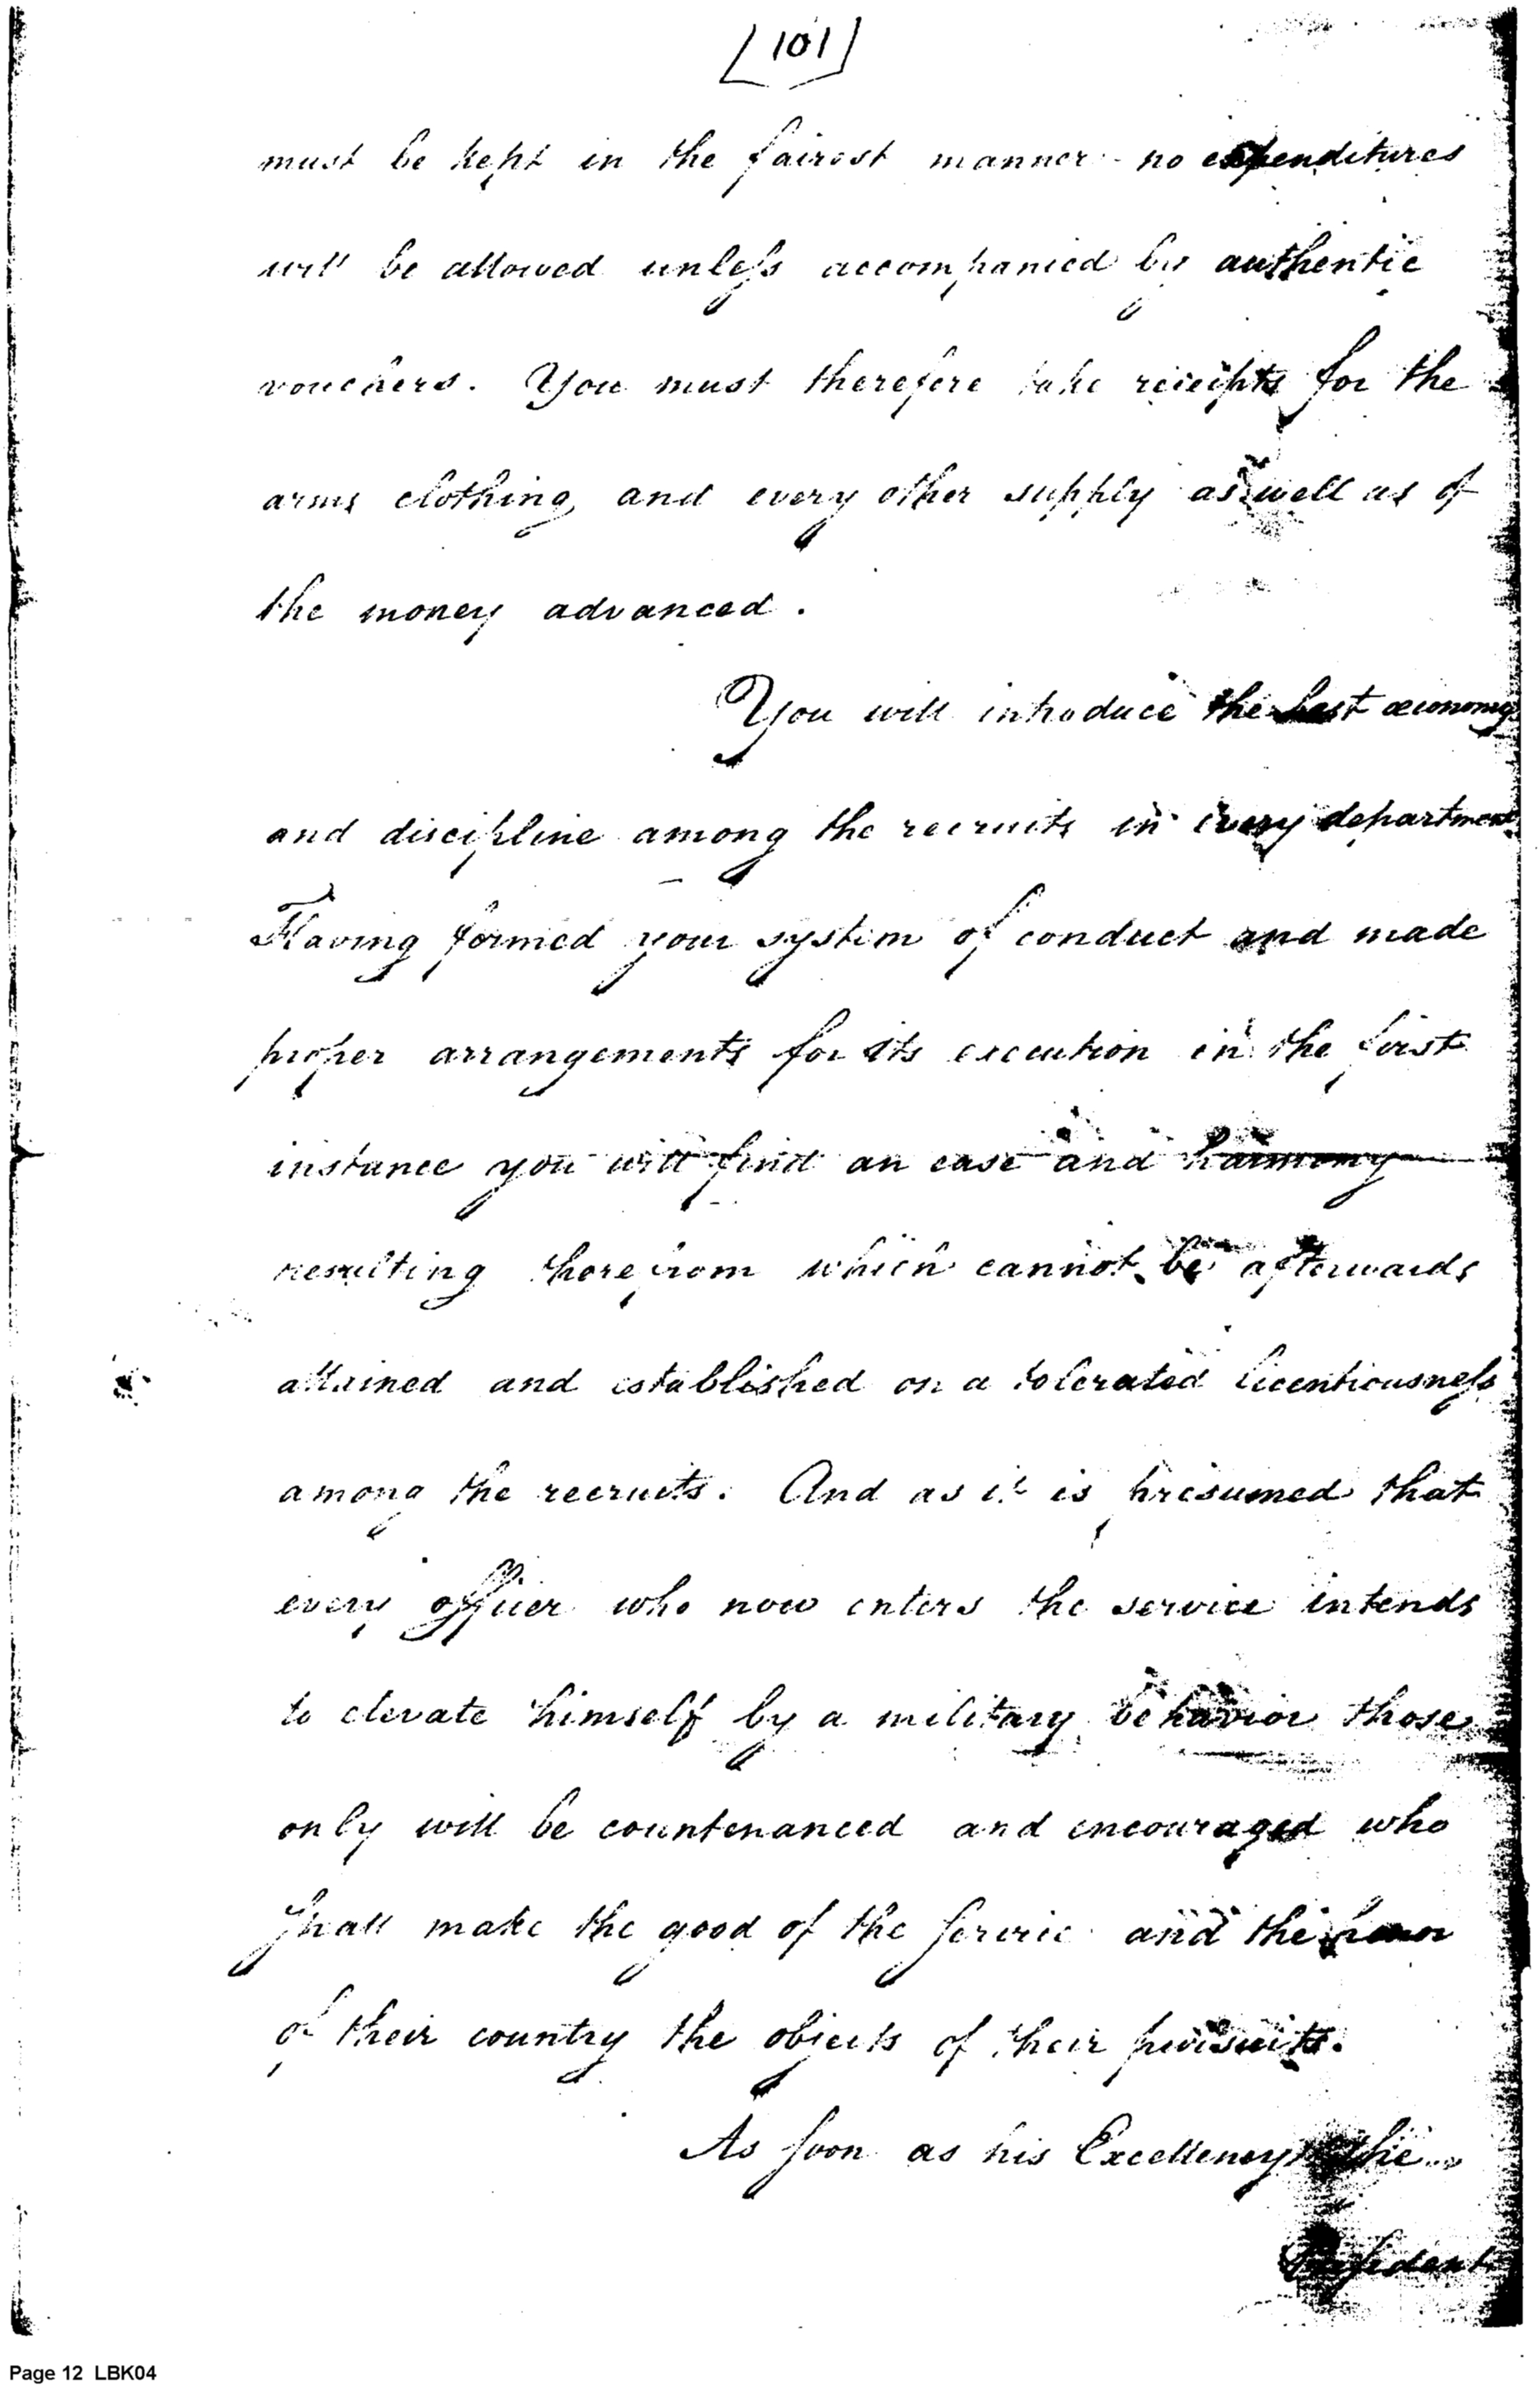 [101]
must be kept in the fairest manner - no expenditures
will be allowed unless accompanied by authentic
vouchers. You must therefore take receipts for the
arms clothing and every other supply as well as of
the money advanced.
You will introduce the best œconomy
and discipline among the recruits in every department
Having formed your system of conduct and made
proper arrangements for its execution in the first
instance you will find an ease and harmony
resulting therefrom which cannot be afterwards
attained and established on a tolerated licentiousness
among the recruits. And as it is presumed that
every officer who now enters the service intends
to elevate himself by a military behavior those
only will be countenanced and encouraged who
shall make the good of the service and the honor
of their country the objects of their pursuits.
As soon as his Excellency the
President
Page 12 LBK04